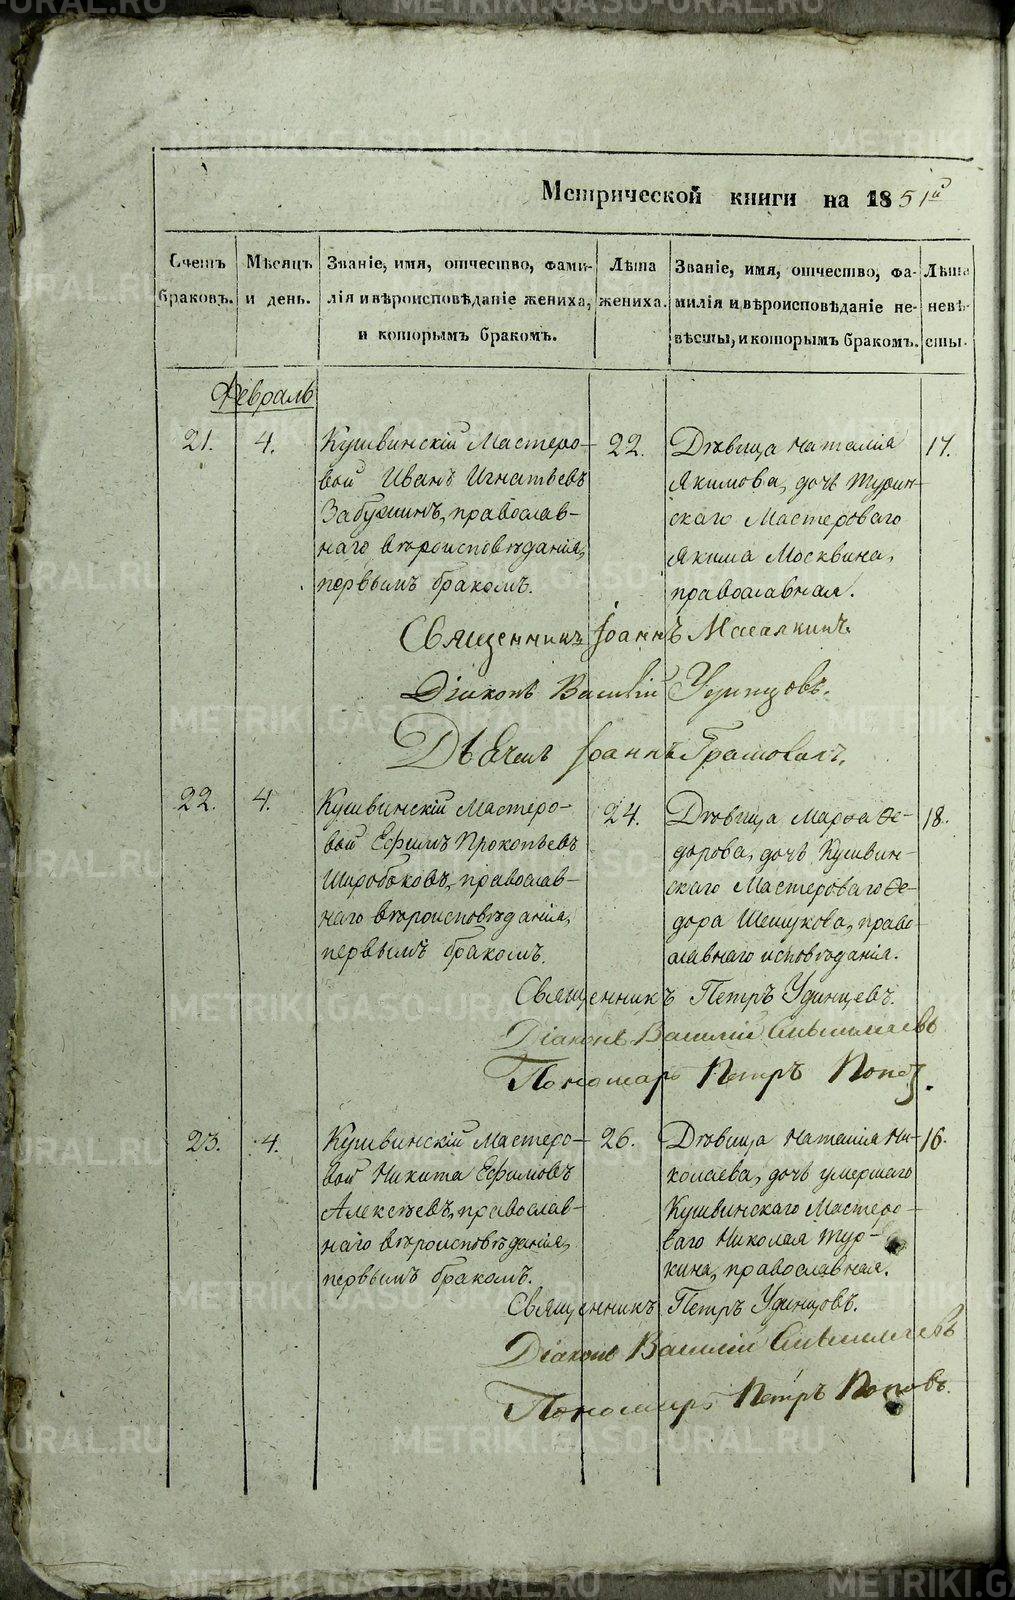 Метрической книги на 1851й
Счетъ браковъ.
Мѣсяцъ и день.
Званіе, имя, отчество, фами-
лія и вѣроисповѣданіе жениха,
и которымъ бракомъ.
Лѣта жениха.
Званіе, имя, отчество, фа-
милія и вѣроисповѣданіе не-
вѣсты, и которымъ бракомъ.
Лѣта невѣ-
сты.
Февраль
21. 4.
Кушвинскій Мастеро-
вой Иванъ Игнатьевъ
Забушинъ, православ-
наго вѣроисповѣданія,
первымъ бракомъ.
22.
Дѣвица Наталія
Якимова, дочь Турин-
скаго Мастероваго
Якима Москвина,
православная.
17.
Священникъ Іоаннъ Масалкинъ.
Діаконъ Василій
Дьячекъ Іоаннъ
22. 4.
Кушвинскій Мастеро-
вой Ефимъ Прокопьевъ
Широбоковъ, православ-
наго вѣроисповѣданія,
первымъ бракомъ.
24.
Дѣвица Марѳа Ѳе-
дорова, дочь Кушвин-
скаго Мастероваго Ѳе-
дора Шешукова, право-
славнаго исповѣданія.
18.
Священникъ Петръ Удинцевъ.
Діаконъ Василій
Пономарь Петръ Поповъ.
23. 4.
Кушвинскій Мастеро-
вой Никита Ефимовъ
Алексѣевъ, православ-
наго вѣроисповѣданія,
первымъ бракомъ.
26.
Дѣвица Наталія Ни-
колаева, дочь умершаго
Кушвинскаго Мастеро-
ваго Николая Тур-
кина, православная.
16.
Священникъ Петръ Удинцовъ.
Діаконъ Василій
Пономарь Петръ Поповъ.
METRIKI.GASO-URAL.RU